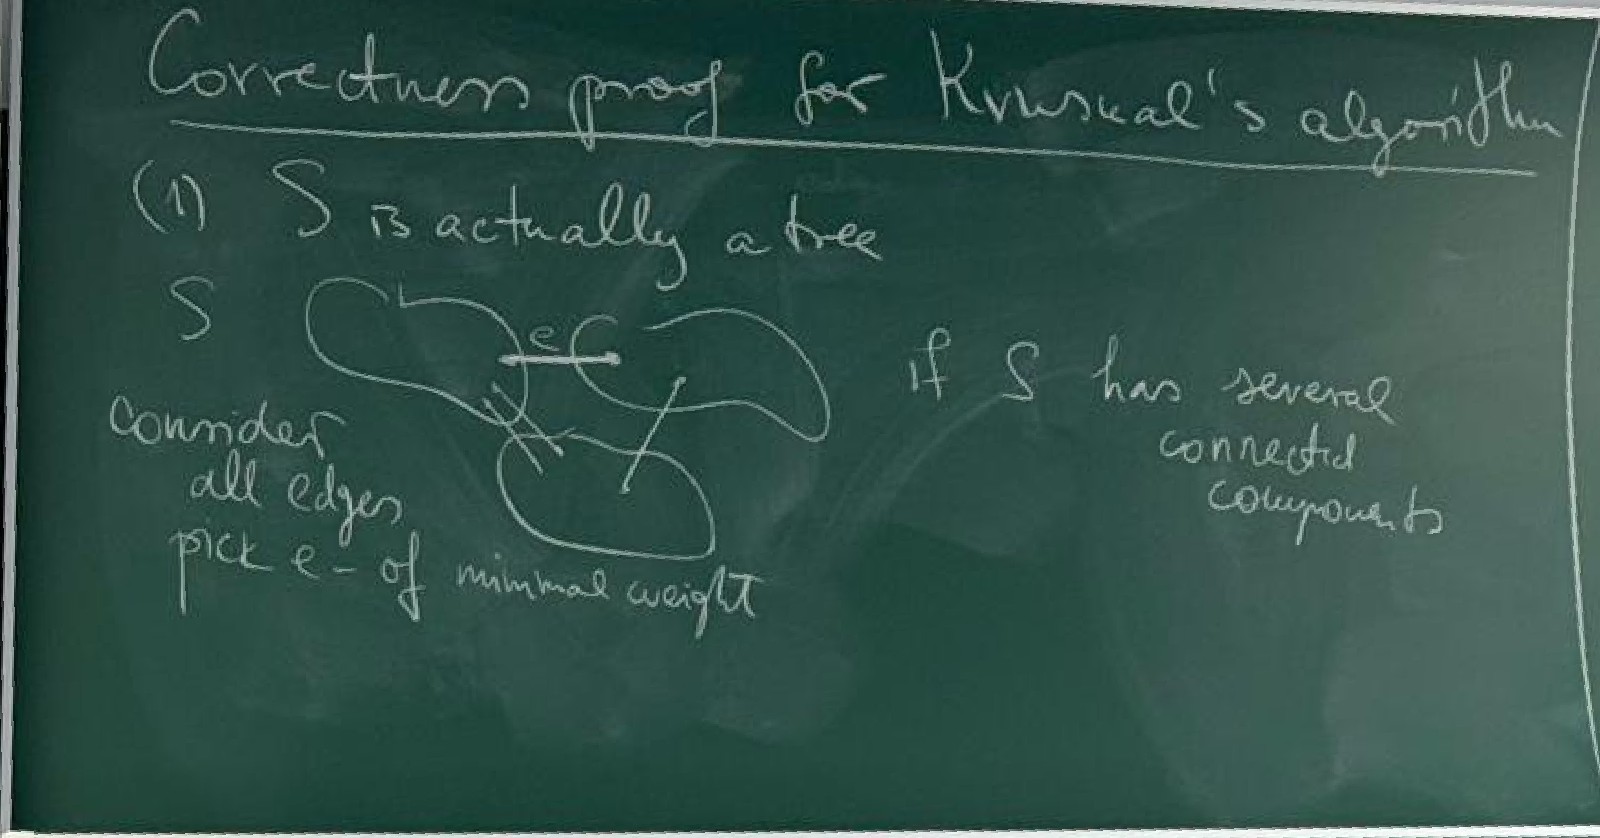 Correctness proof for Kruskal's algorithm
(1) S is actually a tree
S
e
if S has several
connected
components
consider
all edges
pick e - of minimal weight